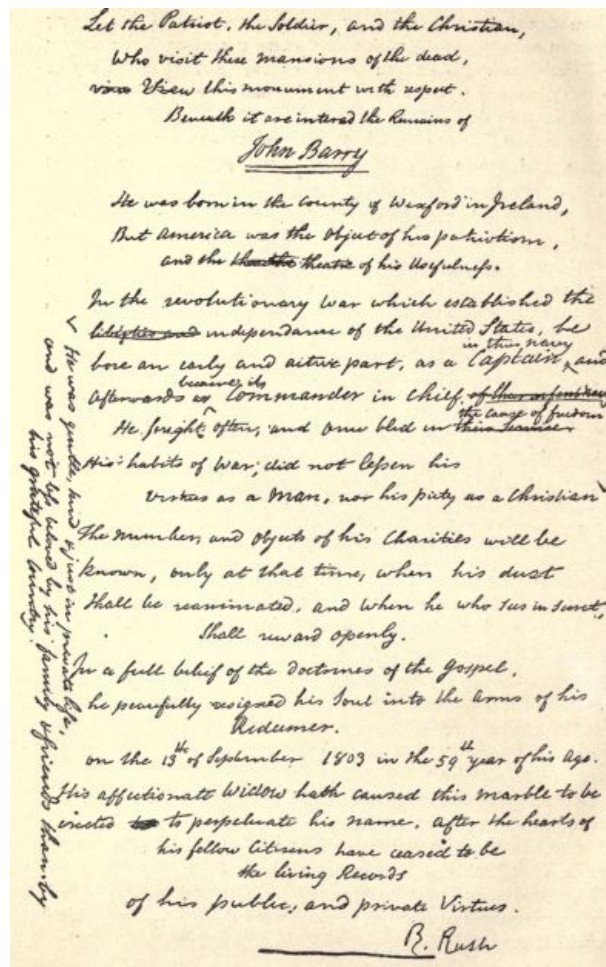 Let the Patriot, the Soldier, and the Christian,
Who visit these mansions of the dead,
View this monument with respect.
Beneath it are interred the Remains of
John Barry
He was born in the County of Wexford in Ireland,
But America was the object of his patriotism,
and the theatre of his usefulness.
In the revolutionary war which established the
liberties and independance of the United States, he
in their navy
bore an early and active part, as a Captain, and
became its
afterwards as Commander in Chief,
the cause of freedom
He fought often, and once bled in their service.
His habits of war, did not lessen his
virtues as a Man, nor his piety as a Christian
The number, and objects of his Charities will be
known, only at that time, when his dust
Shall be reanimated, and when he who sees in secret,
Shall reward openly.
In a full belief of the doctrines of the Gospel,
he peacefully resigned his Soul into the arms of his
Redeemer.
on the 13th of September 1803 in the 59th year of his Age.
His affectionate Widow hath caused this marble to be
erected to perpetuate his name, after the hearts of
his fellow Citizens have ceased to be
the living Records
of his public, and private Virtues.
B. Rush
He was gentle, kind & just in private life,
and was not less beloved by his family & friends than by
his grateful Country.